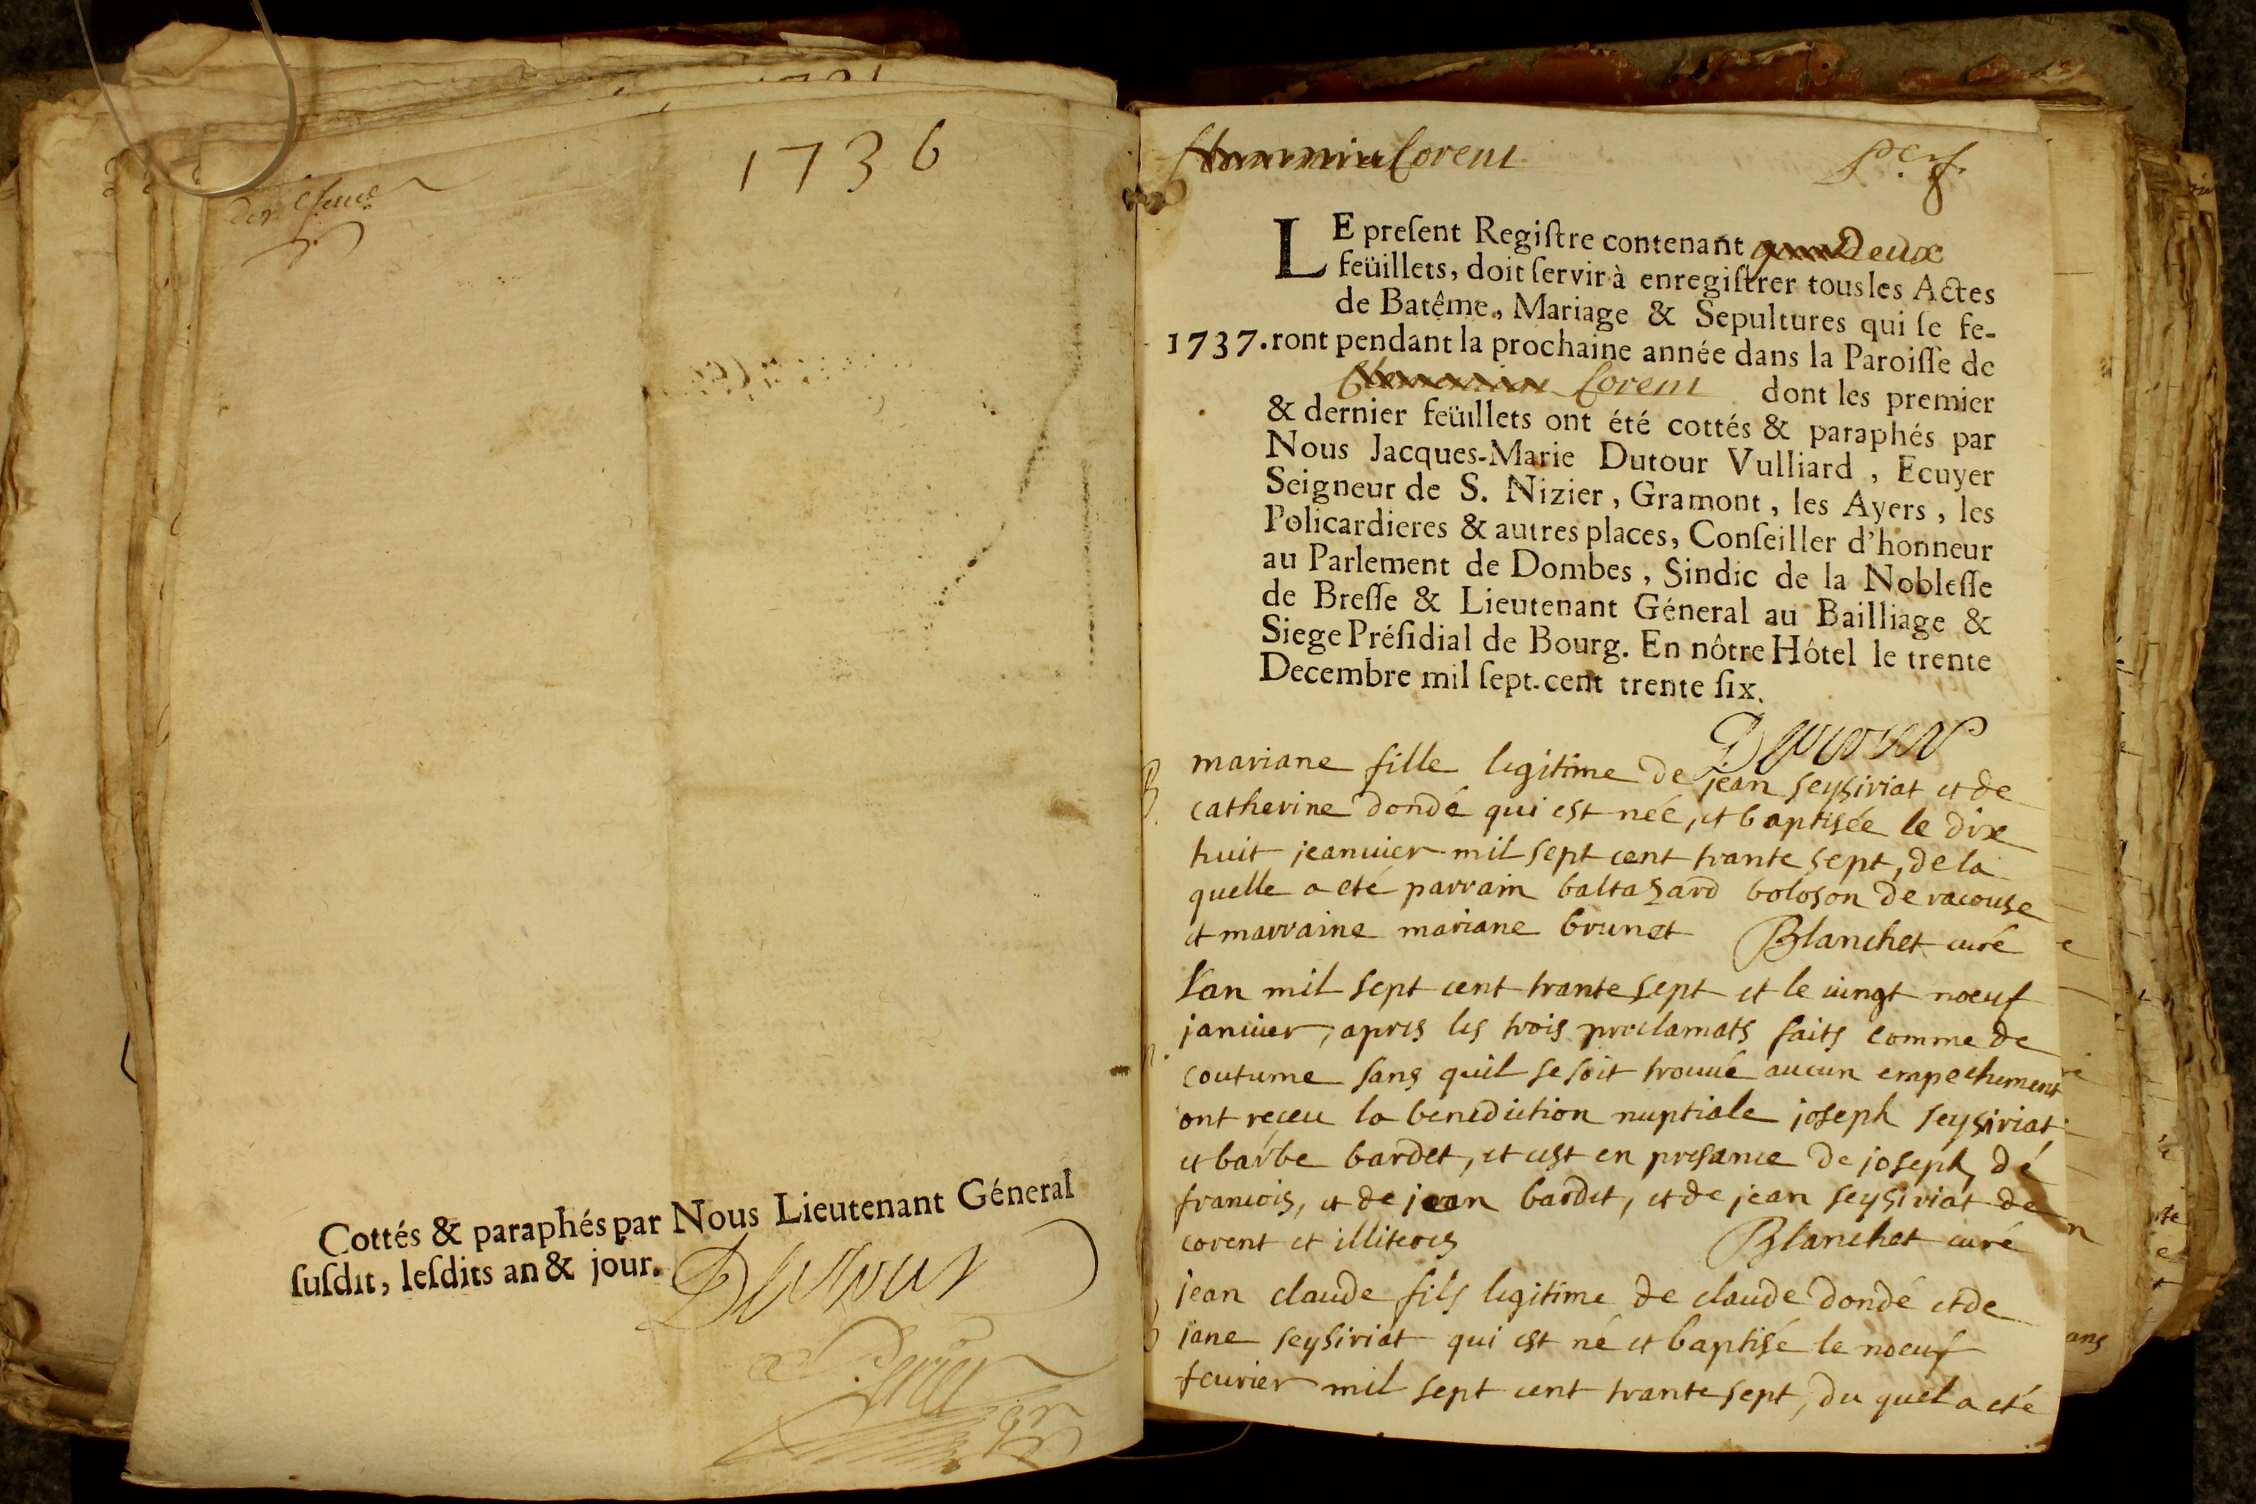 1736
Cottés & paraphés par Nous Lieutenant Géneral
suſdit, leſdits an & jour.
Dutour
Corent
LE preſent Regiſtre contenant Deux
feüillets, doit ſervir à enregiſtrer tous les Actes
de Batême, Mariage & Sepultures qui ſe fe-
1737. ront pendant la prochaine année dans la Paroiſſe de
Corent dont les premier
& dernier feüillets ont été cottés & paraphés par
Nous Jacques-Marie Dutour Vulliard, Ecuyer
Seigneur de S. Nizier, Gramont, les Ayers, les
Policardieres & autres places, Conſeiller d'honneur
au Parlement de Dombes, Sindic de la Nobleſſe
de Breſſe & Lieutenant Géneral au Bailliage &
Siege Préſidial de Bourg. En nôtre Hôtel le trente
Decembre mil ſept. cent trente ſix.
Dutour
mariane fille legitime de jean seysiriat et de
catherine dondé qui est née, et baptisée le dix
huit jeanuier mil sept cent trante sept, de la
quelle a eté parrain baltazard boloson de racouse
et marraine mariane brunet Blanchet curé
l'an mil sept cent trante sept et le uingt noeuf
januier, apres les trois proclamats faits comme de
coutume sans quil se soit trouué aucun empechement
ont receu la benediction nuptiale joseph seysiriat
et barbe bardet, et cest en presance de joseph dé
francois, et de jean bardet, et de jean seysiriat de
corent et illiteres Blanchet curé
jean claude fils legitime de claude dondé et de
jane seysiriat qui est né et baptisé le noeuf
feurier mil sept cent trante sept, du quel a eté